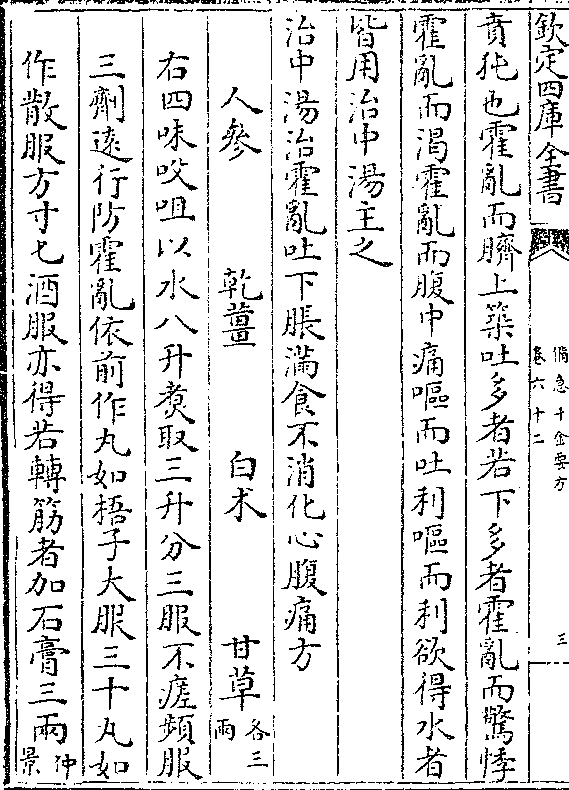 欽定四庫全書
備急千金要方
卷六十二
三
賁㹠也霍亂而臍上築吐多者若下多者霍亂而驚悸
霍亂而渴霍亂而腹中痛嘔而吐利嘔而利欲得水者
皆用治中湯主之
治中湯治霍亂吐下脹滿食不消化心腹痛方
人參 乾薑 白术 甘草各三兩
右四味㕮咀以水八升煮取三升分三服不瘥頻服
三劑逺行防霍亂依前作丸如梧子大服三十丸如
作散服方寸匕酒服亦得若轉筋者加石膏三兩仲景